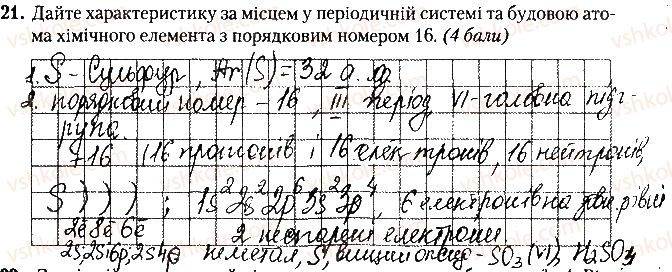 21. Дайте характеристику за місцем у періодичній системі та будовою ато-
ма хімічного елемента з порядковим номером 16. (4 бали)
1. S - Сульфур, Ar(S) = 32 а.
2. порядковий номер - 16, III період, VI - головна підг-
рупа.
+16 (16 протонів і 16 електронів, 16 нейтронів,
S ) ) ) ; 1s² 2s² 2p⁶ 3s² 3p⁴, 6 електронів на рівні
2ē 8ē 6ē 2 неспарені електрони.
2s, 2s6p, 2s4p неметал, S, вищий оксид - SO₃ (VI), H₂SO₄